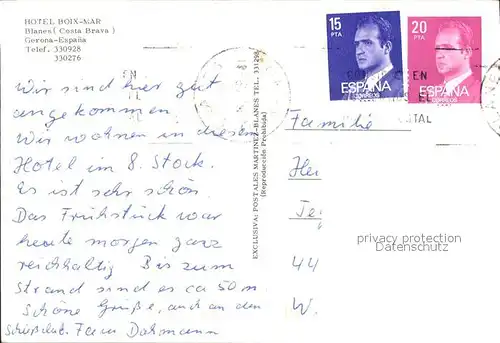 HOTEL BOIX-MAR
Blanes ( Costa Brava )
Gerona-España
Telef. 330928
330276
Wir sind hier gut
angekommen
Wir wohnen in diesem
Hotel im 8. Stock.
Es ist sehr schön.
Das Frühstück war
heute morgen ganz
reichhaltig Bis zum
Strand sind es ca 50 m.
Schöne Grüße, auch an den
Fam Dahmann
EXCLUSIVA: POSTALES MARTINEZ-BLANES TEL. 331298
(Reproducción Prohibida)
15
PTA
ESPAÑA
CORREOS
20
PTA
ESPAÑA
CORREOS
Familie
44
W.
privacy protection
Datenschutz